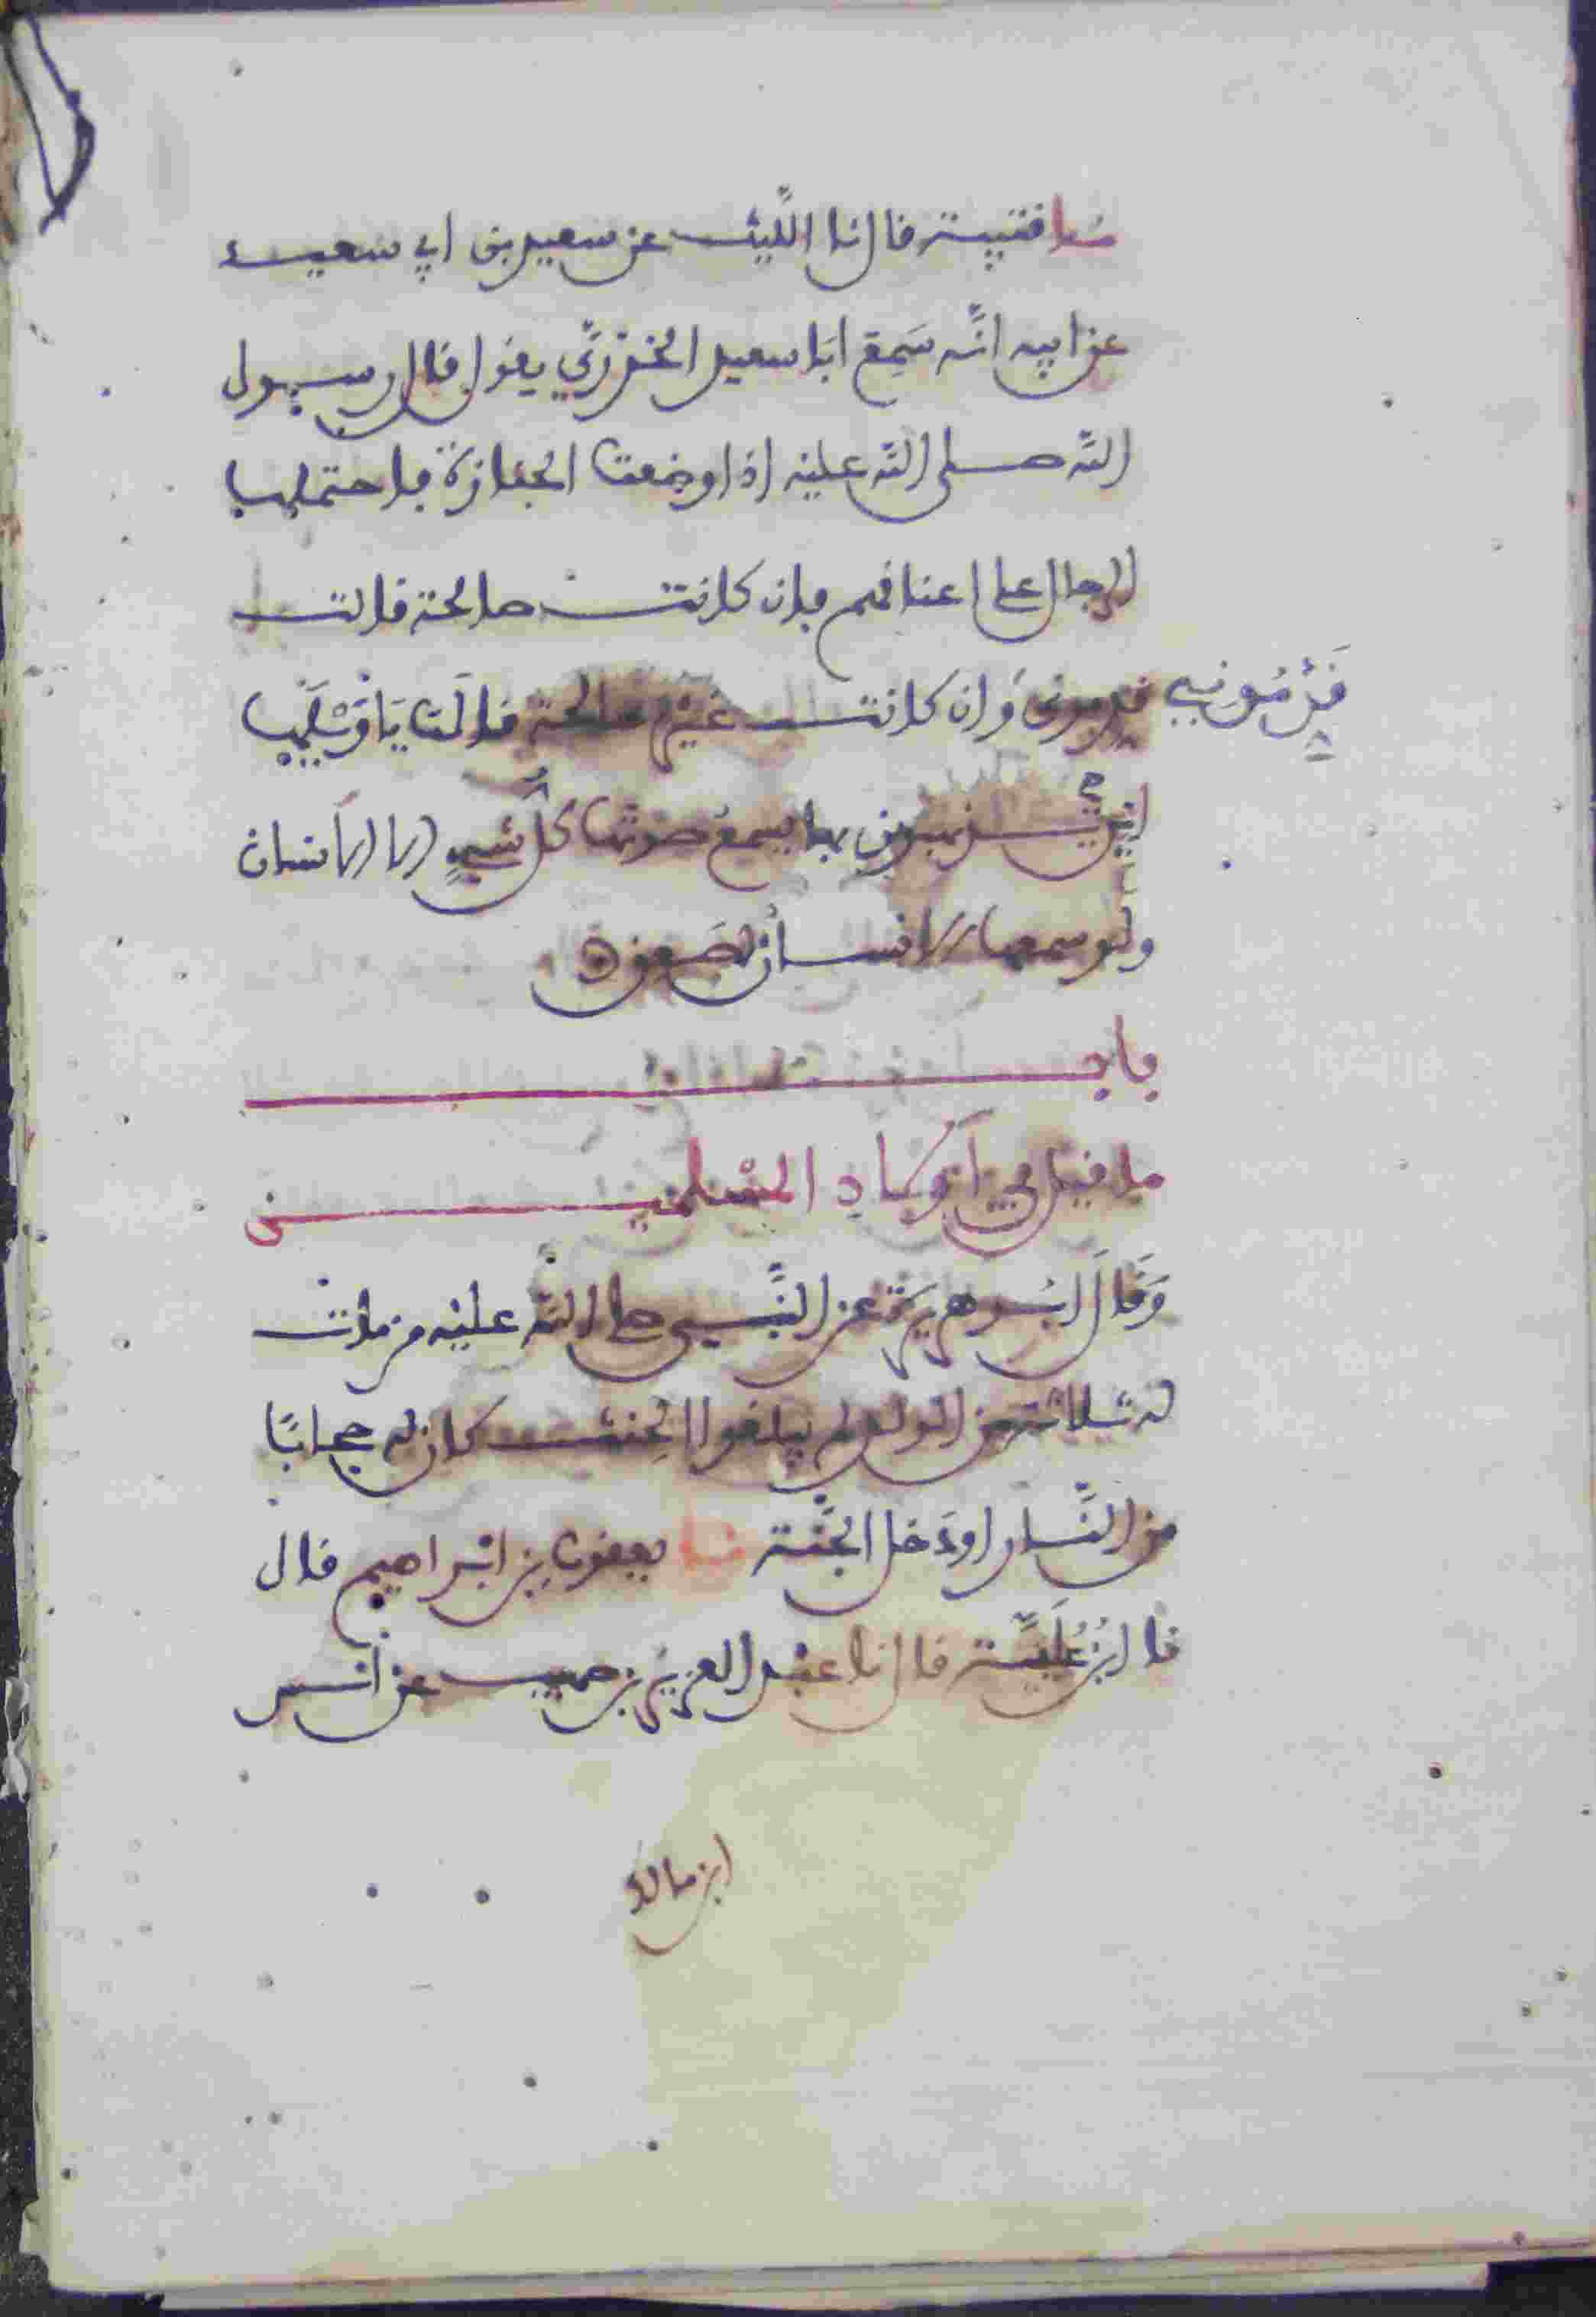 نا قتيبة قال نا اللَّيث عن سعيد بن ابي سعيد
عن ابيه انَّه سَمِعَ ابَا سعيد الخدْرِيَّ يقول قال رسول
اللّه صلى اللّه عليه اذا وضعت الجنازة فاحتملها
الرجال على اعناقهم فان كانت صالحة قالت
قَدِّمُونِي قدموني وَان كانت غيْر صالحة قالت يَا وَيْلَهَا
ايْن تذهبون بها يسمعُ صَوْتها كلُّ شيءٍ الا الاِنسان
ولو سمعها الانسان لصَعِقَ
باب
ما قيل في اَوْلاَدِ المسْلمين
وَقَالَ ابُو هريْرَةَ عن النَّبي صلى اللّه عليْه من مات
له ثلاثة من الولد لم يبلغوا الحِنث كان له حجابًا
من النَّار او دَخل الجنَّة نا يعقوب بن ابْراهيم قال
نا ابْنُ عُلَيَّة قال نا عبْد العزيْز بن صهيب عن انس
ابن مالك